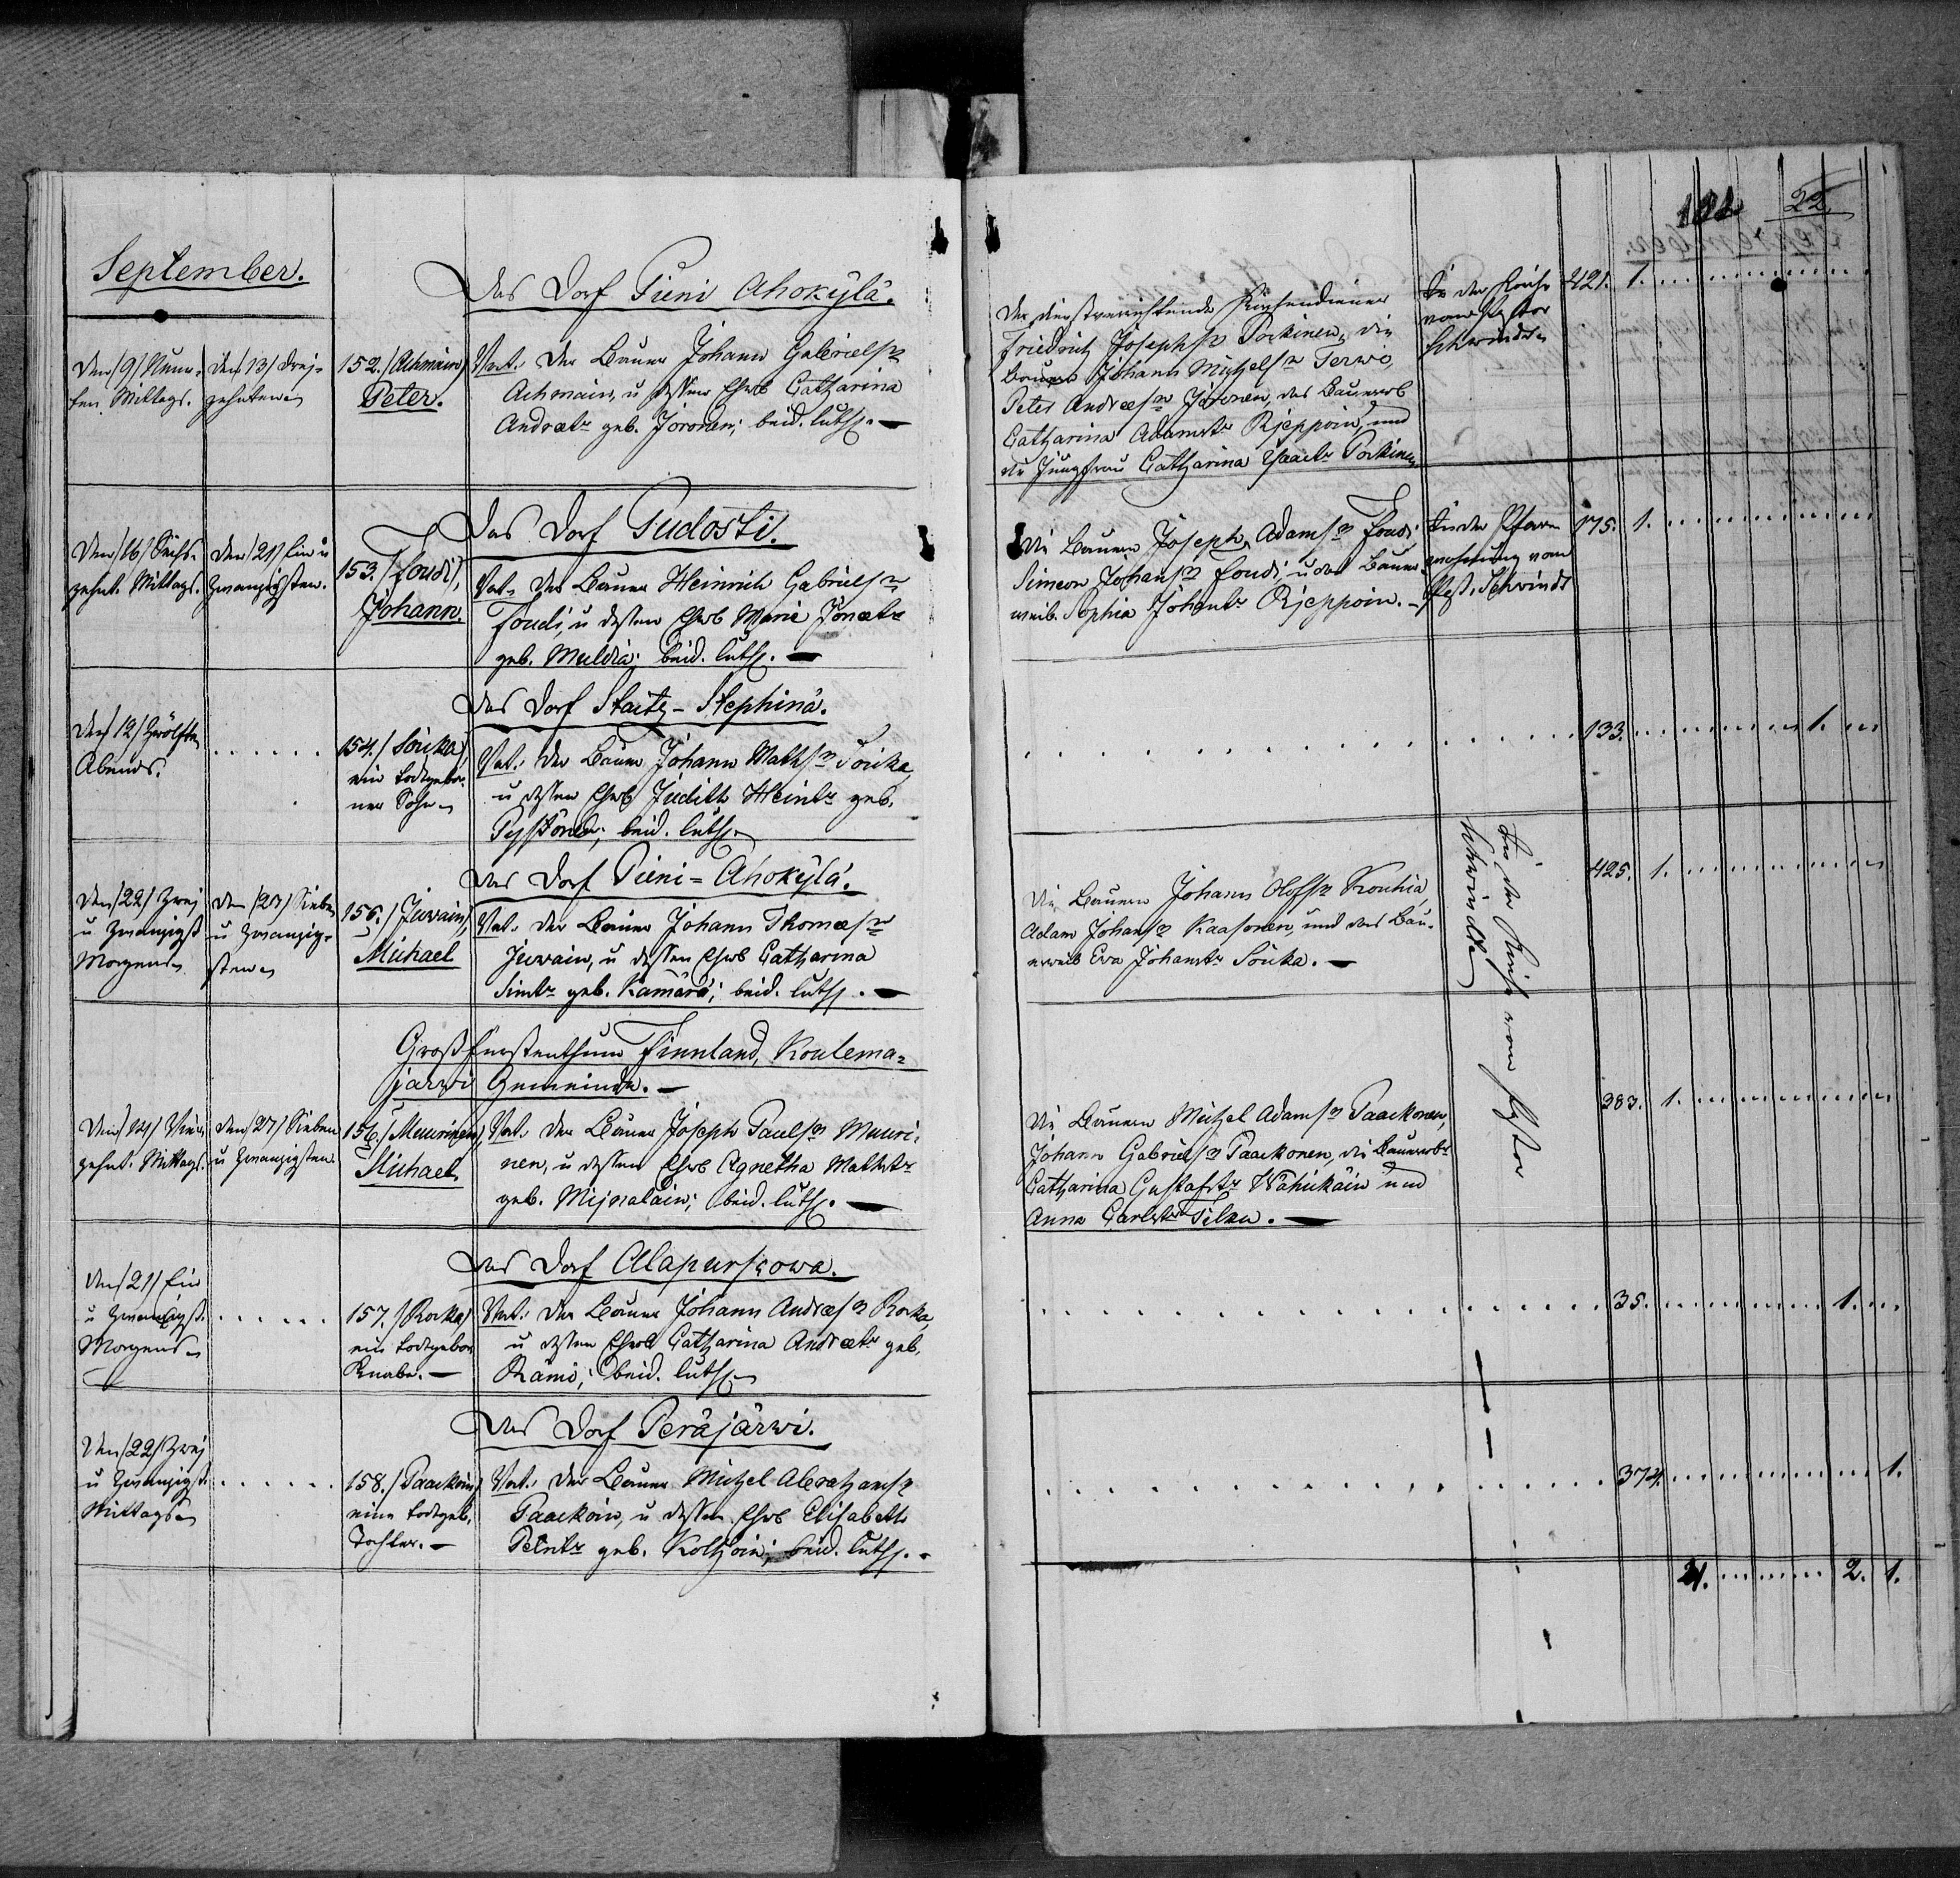 September.
Das Dorf Pieni Ahokylä.
Den /9/ Neun-
ten. Mittags.
den /13/ Drej-
zehnten
152. /Achmain/
Peter.
Vat: Der Bauer Johann Gabrielsn
Achmain, u dessen Ehwb Catharina
Andreætr geb. Joronen; beid. luthr. —
Das Dorf Pudosti.
Den /16/ Sechs-
zehnt. Mittags.
Den /21/ Ein u
Zwanzigsten.
153. /Foudi/,
Johann.
Vat. Der Bauer Heinrich Gabrielsn
Foudi, u dessen Ehwb Marie Jonætr
geb. Muldia; beid. luthr. —
Das Dorf Staitz-Stephina.
Den /12/ Zwölften
Abends.
154. /Souka/
ein todtgebor
ner Sohn
Vat: Der Bauer Johann Mathsn Souka,
u dessen Ehwb Judith Heintr geb.
beid. luthr.
Das Dorf Pieni-Ahokylä.
Den /22/ Zwej
u Zwanzigst
Morgens
Den /27/ Sieben
u Zwanzig-
sten
155. /Juvain/,
Michael
Vat. Der Bauer Johann Thomæsn
Juvain, u dessen Ehwb Catharina
Simtr geb. Kämärä; beid. luthr. —
Großfürstenthum Finnland, Koulema-
jarwi Gemeinde. —
Den /14/ Vier
zehnt. Mittags.
Den /27/ Sieben
u Zwanzigsten
156. /Muurinen/
Michael
Vat. Der Bauer Joseph Paulsn Muuri-
nen, u dessen Ehwb Agnetha Mathstr
geb. Mijnalain; beid. luthr. —
Das Dorf Alapurskowa.
Den /21/ Ein
u Zwanzigst.
Morgens
157. /Rocka/
ein todtgebor
Knabe. —
Vat: Der Bauer Johann Andreæsn Rocka,
u dessen Ehwb Catharina Andreætr geb.
Rämö; beid. luthr.
Das Dorf Peräjärwi.
Den /22/ Zwej
u Zwanzigst.
Mittags
158. /Paackoin/
eine todtgeb.
Tochter. —
Vat: Der Bauer Michel Abrahamsn
Paackoin, u dessen Ehwb Elisabeth
Petritr geb. Kolhoin; beid. luthr.
22
Der dienstverrichtende Kirchendiener
Friedrich Josephsn Porkinen, die
Bauern Johann Michelsn Terwo,
Peter Andreæsn Joronen, das Bauerwb
Catharina Adamstr Rjeppoin, und
die Jungfrau Catharina Isaactr Porkinen
In der Kirche
vom Pastor
Schwindt
421. 1.
Die Bauern Joseph Adamsn Foudi
Simeon Johansn Foudi, u das Bauer-
weib. Sophia Johantr Rjeppoin. —
In der Pfarr-
wohnung vom
Past. Schwindt
175. 1.
133. 1.
Die Bauern Johann Olofsn Kouhia,
Adam Johansn Kaasonen, und das Bau-
erweib Eva Johanstr Souka. —
In der Kirche vom Pastor
Schwindt
425. 1.
Die Bauern Michel Adamsn Paackonen,
Johann Gabrielsn Paackonen, die Bauerwbr
Catharina Gustafstr Wahickäin und
Anna Carlstr Tilka. —
383. 1.
35. 1.
374. 1.
4. 2. 1.